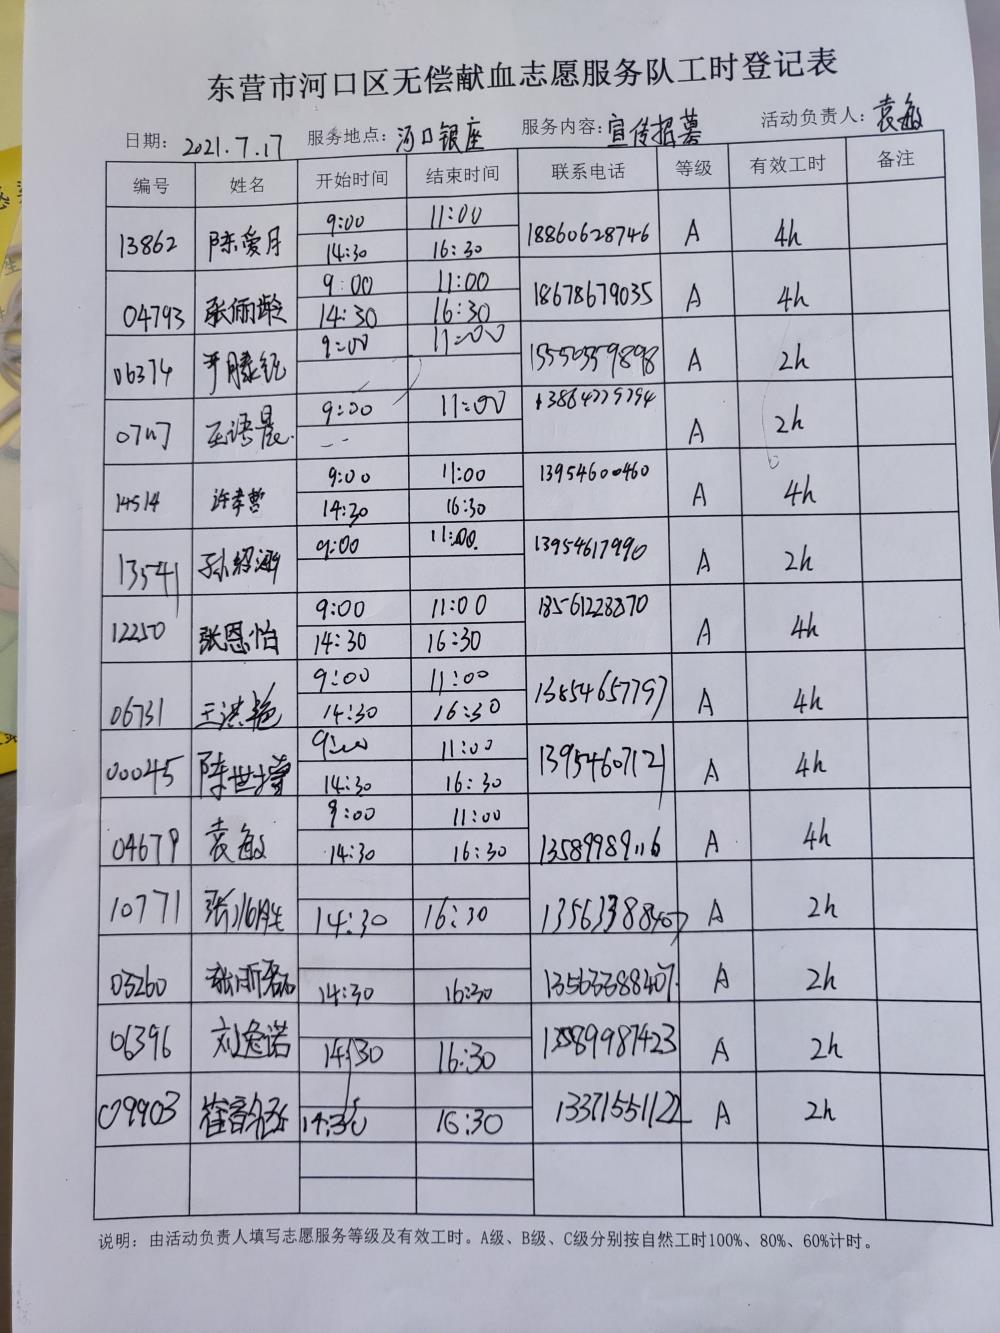 东营市河口区无偿献血志愿服务队工时登记表
日期: 2021.7.17 服务地点: 河口银座 服务内容: 宣传招募 活动负责人: 袁敏
编号 姓名 开始时间 结束时间 联系电话 等级 有效工时 备注
13862 陈爱月 9:00 11:00 18860628746 A 4h
14:30 16:30
04793 张俪龄 9:00 11:00 18678679035 A 4h
14:30 16:30
06374 9:00 11:00 15550559898 A 2h
王语晨 9:00 11:00 A 2h
14514 许孝哲 9:00 11:00 13954600460 A 4h
14:30 16:30
13541 孙绍涵 9:00 11:00 13954617990 A 2h
12250 张恩怡 9:00 11:00 18561228870 A 4h
14:30 16:30
06731 王洪艳 9:00 11:00 13854657797 A 4h
14:30 16:30
00045 陈世增 9:00 11:00 13954607121 A 4h
14:30 16:30
04679 袁敏 9:00 11:00 13589989116 A 4h
14:30 16:30
10771 14:30 16:30 13563388407 A 2h
03260 14:30 16:30 13563388407 A 2h
06396 刘逸诺 14:30 16:30 13589987423 A 2h
09903 14:30 16:30 13371551122 A 2h
说明: 由活动负责人填写志愿服务等级及有效工时。A级、B级、C级分别按自然工时100%、80%、60%计时。